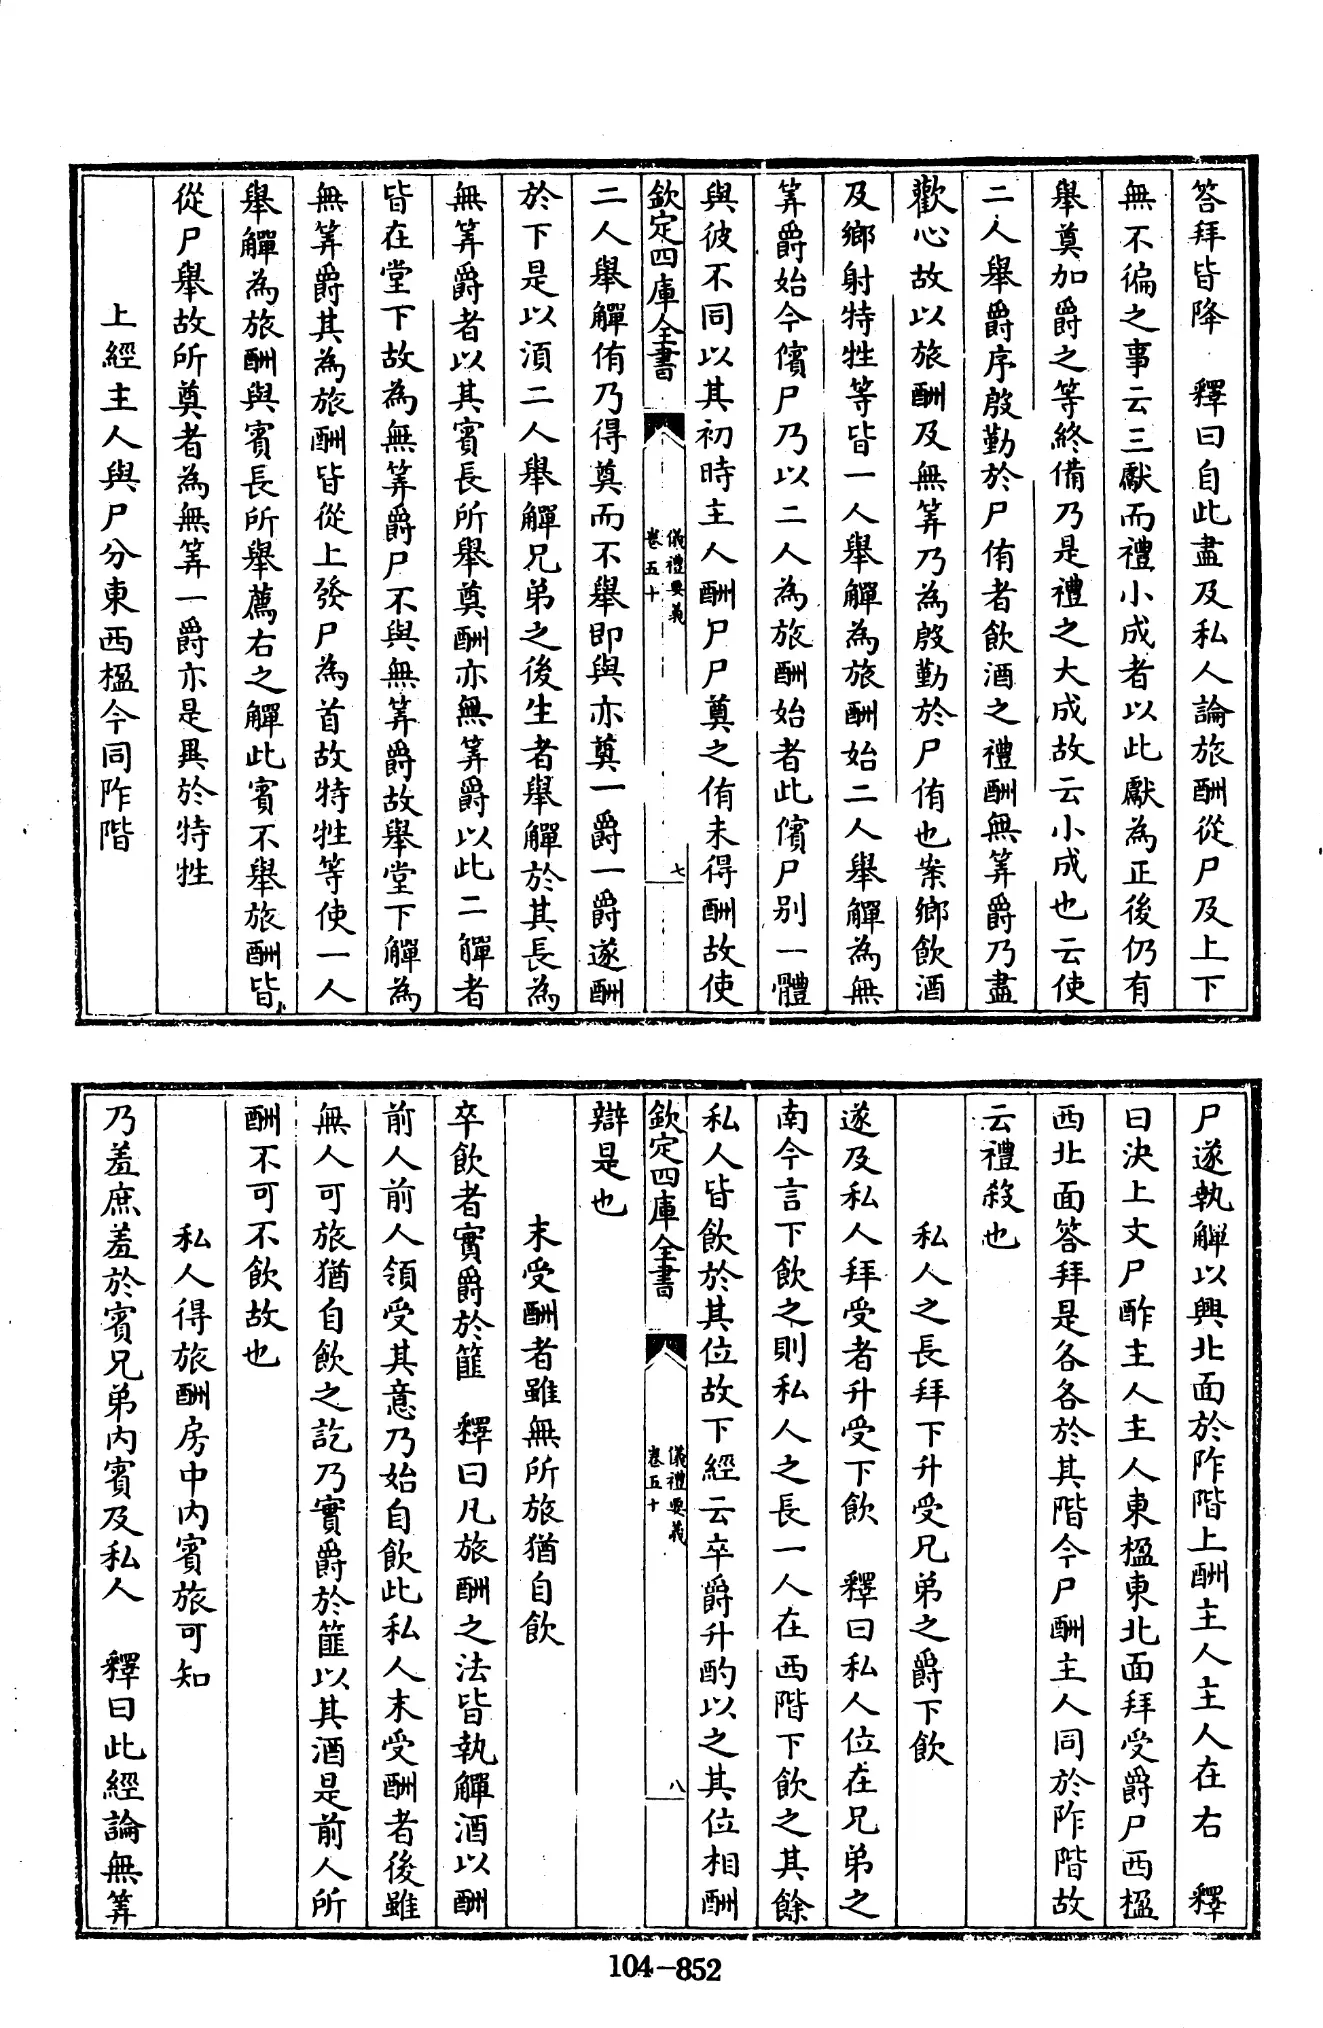 答拜皆降　釋曰自此盡及私人論旅酬從尸及上下
無不徧之事云三獻而禮小成者以此獻為正後仍有
舉奠加爵之等終備乃是禮之大成故云小成也云使
二人舉爵序殷勤於尸侑者飲酒之禮酬無筭爵乃盡
歡心故以旅酬及無筭乃為殷勤於尸侑也案鄉飲酒
及鄉射特牲等皆一人舉觶為旅酬始二人舉觶為無
筭爵始今儐尸乃以二人為旅酬始者此儐尸別一體
與彼不同以其初時主人酬尸尸奠之侑未得酬故使
欽定四庫全書
儀禮要義
卷五十
七
二人舉觶侑乃得奠而不舉即與亦奠一爵一爵遂酬
於下是以湏二人舉觶兄弟之後生者舉觶於其長為
無筭爵者以其賓長所舉奠酬亦無筭爵以此二觶者
皆在堂下故為無筭爵尸不與無筭爵故舉堂下觶為
無筭爵其為旅酬皆從上發尸為首故特牲等使一人
舉觶為旅酬與賓長所舉薦右之觶此賓不舉旅酬皆
從尸舉故所奠者為無筭一爵亦是異於特牲
上經主人與尸分東西楹今同阼階
尸遂執觶以興北面於阼階上酬主人主人在右　釋
曰決上文尸酢主人主人東楹東北面拜受爵尸西楹
西北面答拜是各各於其階今尸酬主人同於阼階故
云禮殺也
私人之長拜下升受兄弟之爵下飲
遂及私人拜受者升受下飲　釋曰私人位在兄弟之
南今言下飲之則私人之長一人在西階下飲之其餘
私人皆飲於其位故下經云卒爵升酌以之其位相酬
欽定四庫全書
儀禮要義
卷五十
八
辯是也
末受酬者雖無所旅猶自飲
卒飲者實爵於篚　釋曰凡旅酬之法皆執觶酒以酬
前人前人領受其意乃始自飲此私人末受酬者後雖
無人可旅猶自飲之訖乃實爵於篚以其酒是前人所
酬不可不飲故也
私人得旅酬房中內賓旅可知
乃羞庶羞於賓兄弟內賓及私人　釋曰此經論無筭
104-852